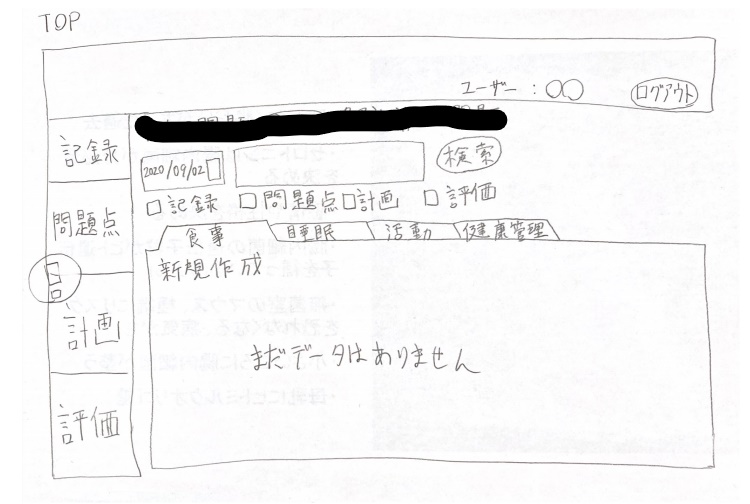 TOP
ユーザー : 〇〇
ログアウト
記録
問題点
計画
評価
2020/09/02
検索
□記録 □問題点 □計画 □評価
食事 睡眠 活動 健康管理
新規作成
まだデータはありません